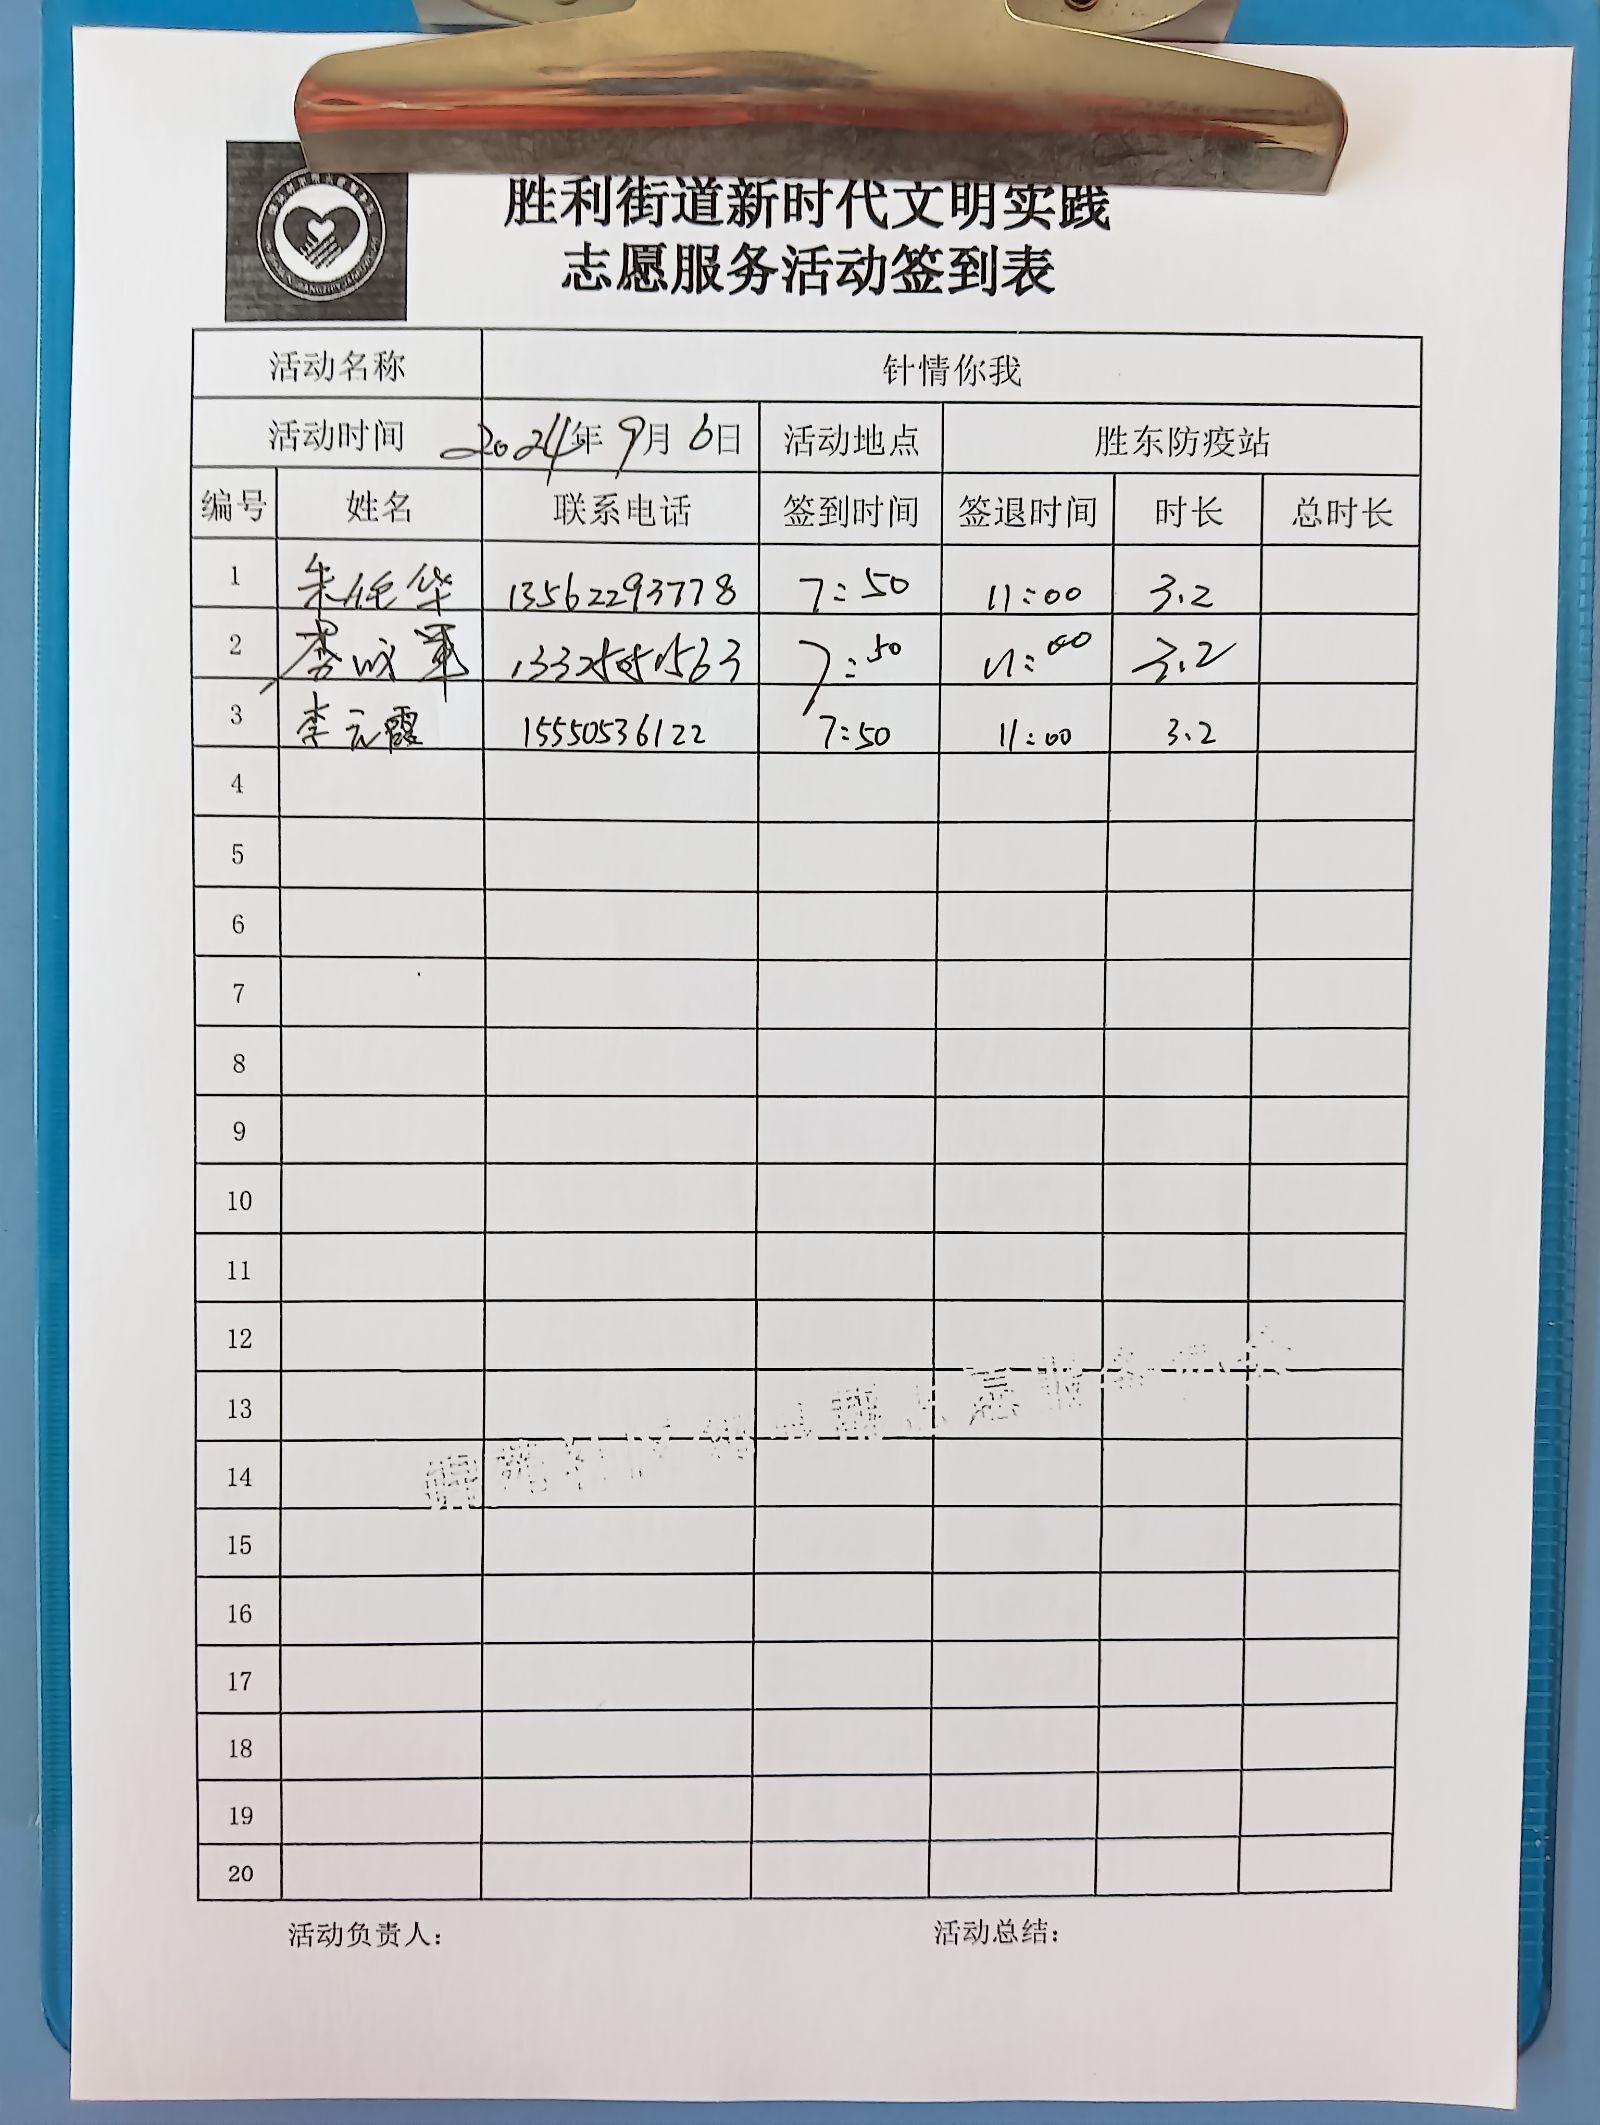 胜利街道新时代文明实践
志愿服务活动签到表
活动名称 针情你我
活动时间 2024年9月6日 活动地点 胜东防疫站
编号 姓名 联系电话 签到时间 签退时间 时长 总时长
1 朱 华 13562293778 7:50 11:00 3.2
2 李成军 7:50 11:00 3.2
3 李元霞 15550536122 7:50 11:00 3.2
4
5
6
7
8
9
10
11
12
13
14
15
16
17
18
19
20
活动负责人: 活动总结: